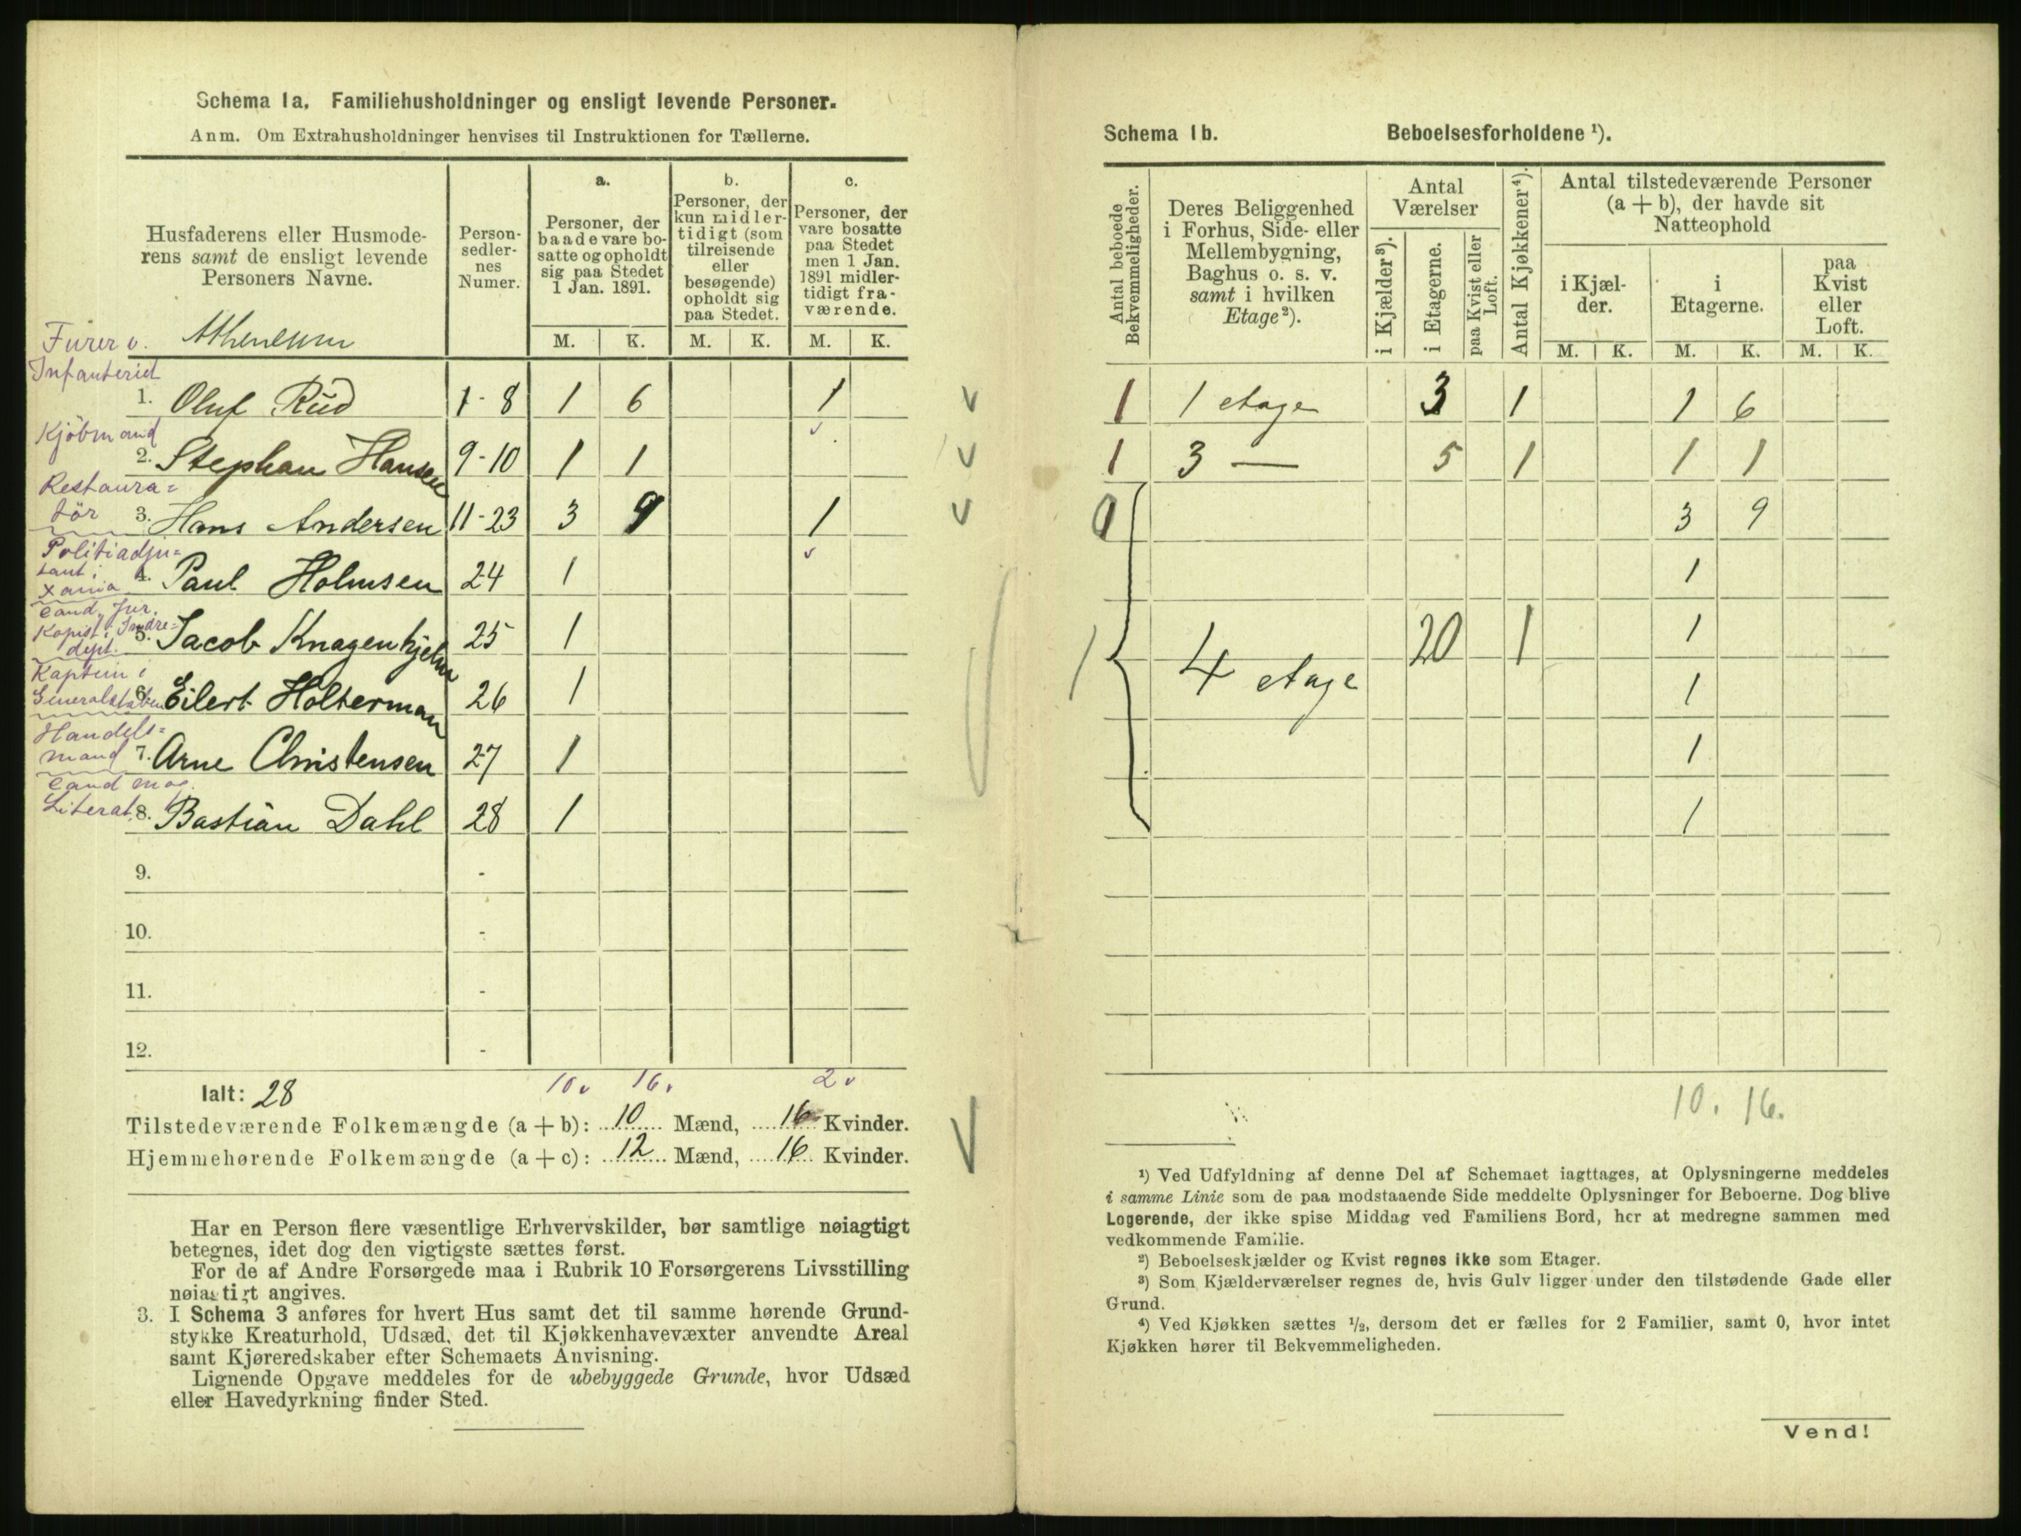 Schema 1a. Familiehusholdninger og ensligt levende Personer.
Anm. Om Extrahusholdninger henvises til Instruktionen for Tællerne.
Husfaderens eller Husmode-
rens samt de ensligt levende
Personers Navne.
Atheneum
Person-
sedler-
nes
Numer.
a.
Personer, der
baade vare bo-
satte og opholdt
sig paa Stedet
1 Jan. 1891.
M. K.
b.
Personer, der
kun midler-
tidigt (som
tilreisende
eller
besøgende)
opholdt sig
paa Stedet.
M. K.
c.
Personer, der
vare bosatte
paa Stedet
men 1 Jan.
1891 midler-
tidigt fra-
værende.
M. K.
Furer v.
Infanteriet
1. Oluf Rud 1-8 1 6 1
Kjöbmand
2. Stephan Hansen 9-10 1 1
Restaura=
tör
3. Hans Andersen 11-23 3 9 1
Politiadju=
tant i
Xania
4. Paul Holmsen 24 1
Cand. jur.
Kopist i Indre=
dept.
5. Jacob Knagenhjelm 25 1
Kaptein i
Generalstaben
6. Eilert Holterman 26 1
Handels=
mand
7. Arne Christensen 27 1
Cand mag.
Literat.
8. Bastian Dahl 28 1
9. -
10. -
11. -
12. -
10 16 2
Ialt: 28
Tilstedeværende Folkemængde (a + b): 10 Mænd, 16 Kvinder.
Hjemmehørende Folkemængde (a + c): 12 Mænd, 16 Kvinder.
Har en Person flere væsentlige Erhvervskilder, bør samtlige nøiagtigt
betegnes, idet dog den vigtigste sættes først.
For de af Andre Forsørgede maa i Rubrik 10 Forsørgerens Livsstilling
nøiagtigt angives.
3. I Schema 3 anføres for hvert Hus samt det til samme hørende Grund-
stykke Kreaturhold, Udsæd, det til Kjøkkenhavevæxter anvendte Areal
samt Kjøreredskaber efter Schemaets Anvisning.
Lignende Opgave meddeles for de ubebyggede Grunde, hvor Udsæd
eller Havedyrkning finder Sted.
Schema 1b. Beboelsesforholdene ¹).
Antal beboede
Bekvemmeligheder.
Deres Beliggenhed
i Forhus, Side- eller
Mellembygning,
Baghus o. s. v.
samt i hvilken
Etage²).
Antal
Værelser
i Kjælder³).
i Etagerne.
paa Kvist eller
Loft.
Antal Kjøkkener⁴).
Antal tilstedeværende Personer
(a + b), der havde sit
Natteophold
i Kjæl-
der.
M. K.
i
Etagerne.
M. K.
paa
Kvist
eller
Loft.
M. K.
1 1 etage 3 1 1 6
1 3 — 5 1 1 1
3 9
1
1 4 etage 20 1 1
1
1
1
10. 16.
¹) Ved Udfyldning af denne Del af Schemaet iagttages, at Oplysningerne meddeles
i samme Linie som de paa modstaaende Side meddelte Oplysninger for Beboerne. Dog blive
Logerende, der ikke spise Middag ved Familiens Bord, her at medregne sammen med
vedkommende Familie.
²) Beboelseskjælder og Kvist regnes ikke som Etager.
³) Som Kjælderværelser regnes de, hvis Gulv ligger under den tilstødende Gade eller
Grund.
⁴) Ved Kjøkken sættes ½, dersom det er fælles for 2 Familier, samt 0, hvor intet
Kjøkken hører til Bekvemmeligheden.
Vend!